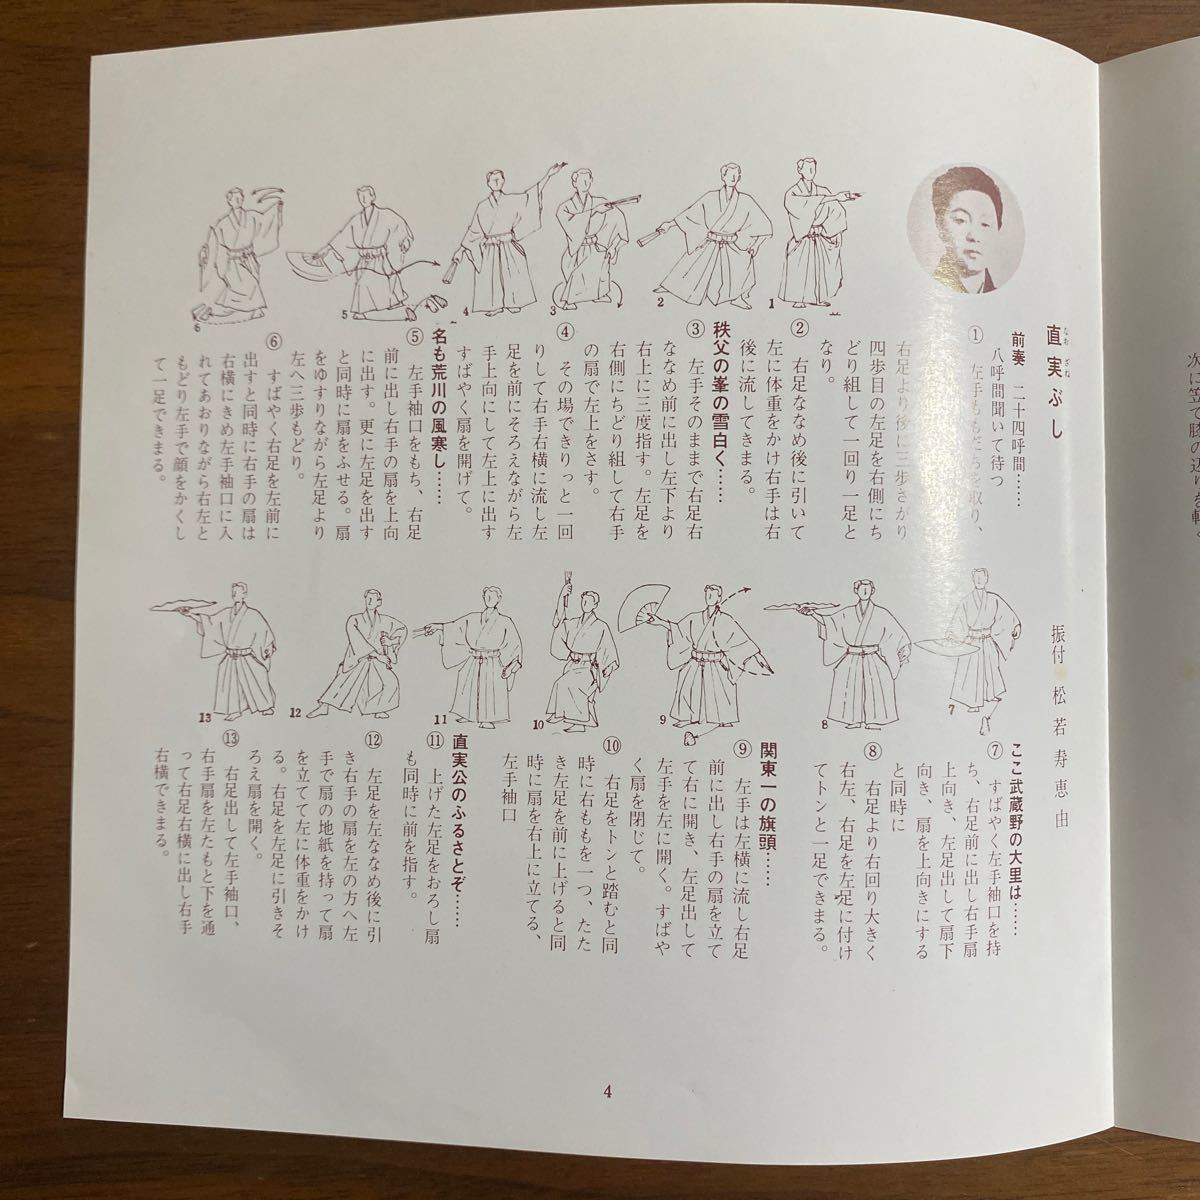 直実ぶし
なおざね
振付 松若寿恵由
前奏 二十四呼間……
八呼間聞いて待つ
① 左手ももだちを取り、
右足より後に三歩さがり
四歩目の左足を右側にち
どり組して一回り一足と
なり。
② 右足ななめ後に引いて
左に体重をかけ右手は右
後に流してきまる。
秩父の峯の雪白く……
③ 左手そのままで右足右
ななめ前に出し左下より
右上に三度指す。左足を
右側にちどり組して右手
の扇で左上をさす。
④ その場できりっと一回
りして右手右横に流し左
足を前にそろえながら左
手上向にして左上に出す
すばやく扇を開げて。
名も荒川の風寒し……
⑤ 左手袖口をもち、右足
前に出し右手の扇を上向
に出す。更に左足を出す
と同時に扇をふせる。扇
をゆすりながら左足より
左へ三歩もどり。
⑥ すばやく右足を左前に
出すと同時に右手の扇は
右横にきめ左手袖口に入
れてあおりながら右左と
もどり左手で顔をかくし
て一足できまる。
1
2
3
4
5
6
ここ武蔵野の大里は……
⑦ すばやく左手袖口を持
ち、右足前に出し右手扇
上向き、左足出して扇下
向き、扇を上向きにする
と同時に
⑧ 右足より右回り大きく
右左、右足を左足に付け
てトンと一足できまる。
関東一の旗頭……
⑨ 左手は左横に流し右足
前に出し右手の扇を立て
て右に開き、左足出して
左手を左に開く。すばや
く扇を閉じて。
⑩ 右足をトンと踏むと同
時に右ももを一つ、たた
き左足を前に上げると同
時に扇を右上に立てる、
左手袖口
直実公のふるさとぞ……
⑪ 上げた左足をおろし扇
も同時に前を指す。
⑫ 左足を左ななめ後に引
き右手の扇を左の方へ左
手で扇の地紙を持って扇
を立てて左に体重をかけ
る。右足を左足に引きそ
ろえ扇を開く。
⑬ 右足出して左手袖口、
右手扇を左たもと下を通
って右足右横に出し右手
右横できまる。
7
8
9
10
11
12
13
4